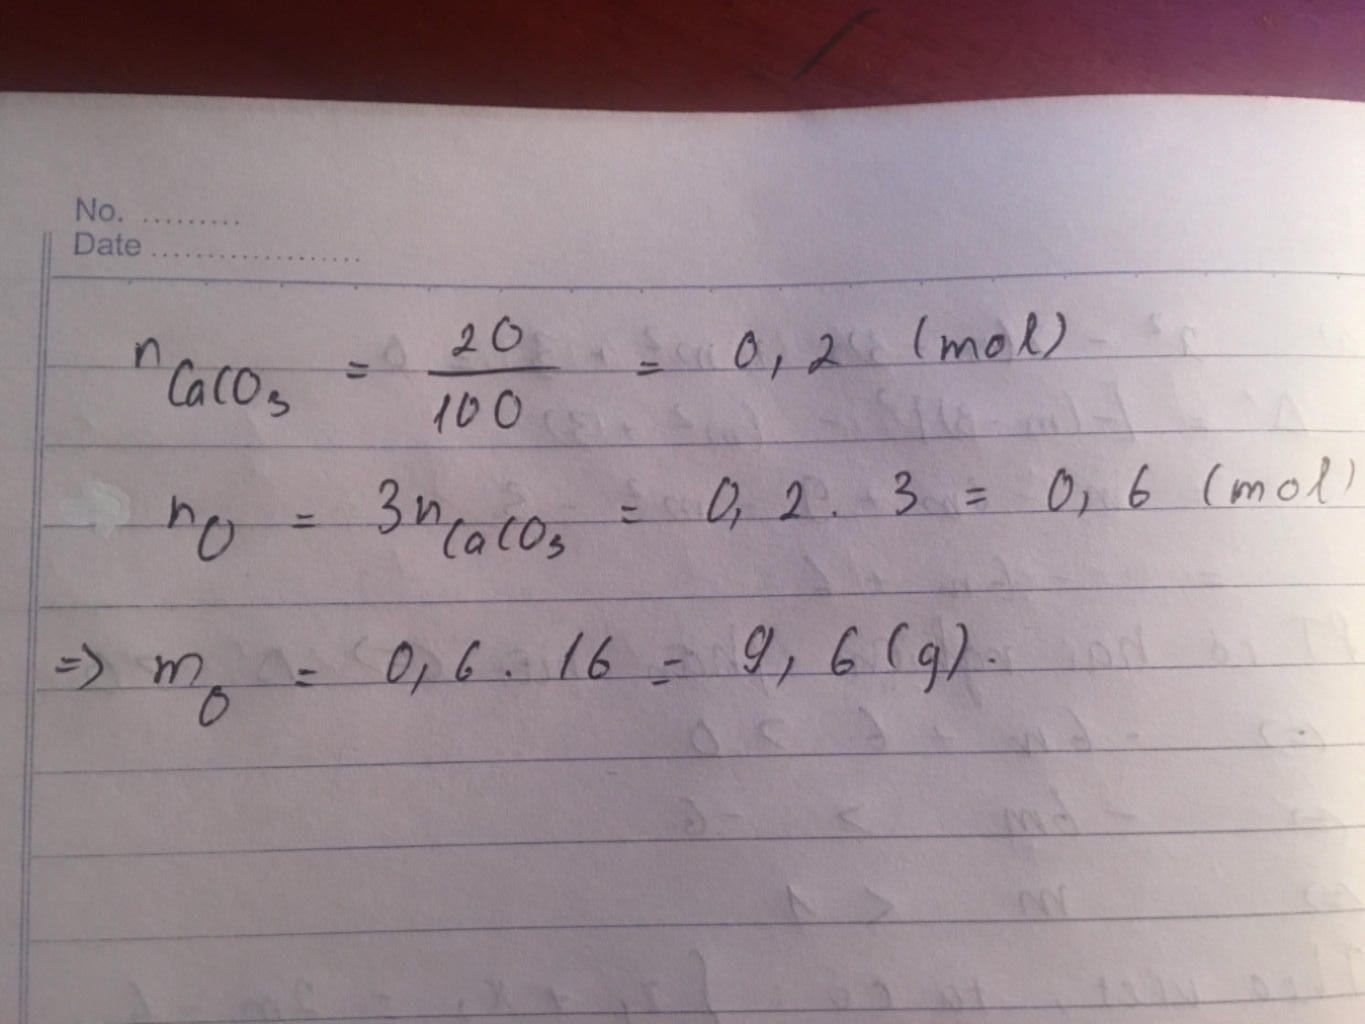 No. .........
Date ...................
n CaCO3 = 20/100 = 0,2 (mol)
nO = 3n CaCO3 = 0,2 . 3 = 0,6 (mol)
=> mO = 0,6 . 16 = 9,6 (g).